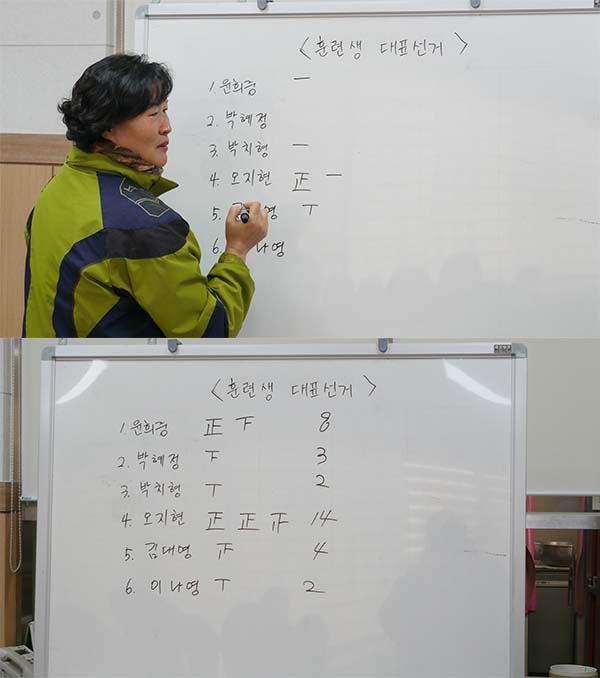 < 훈련생 대표선거 >
1. 윤희중 一
2. 박혜정
3. 박치형 一
4. 오지현 正 一
5. 영 丅
6. 나영
< 훈련생 대표선거 >
1. 윤희중 正 下 8
2. 박혜정 下 3
3. 박치형 丅 2
4. 오지현 正 正 正 14
5. 김대영 正 4
6. 이나영 丅 2